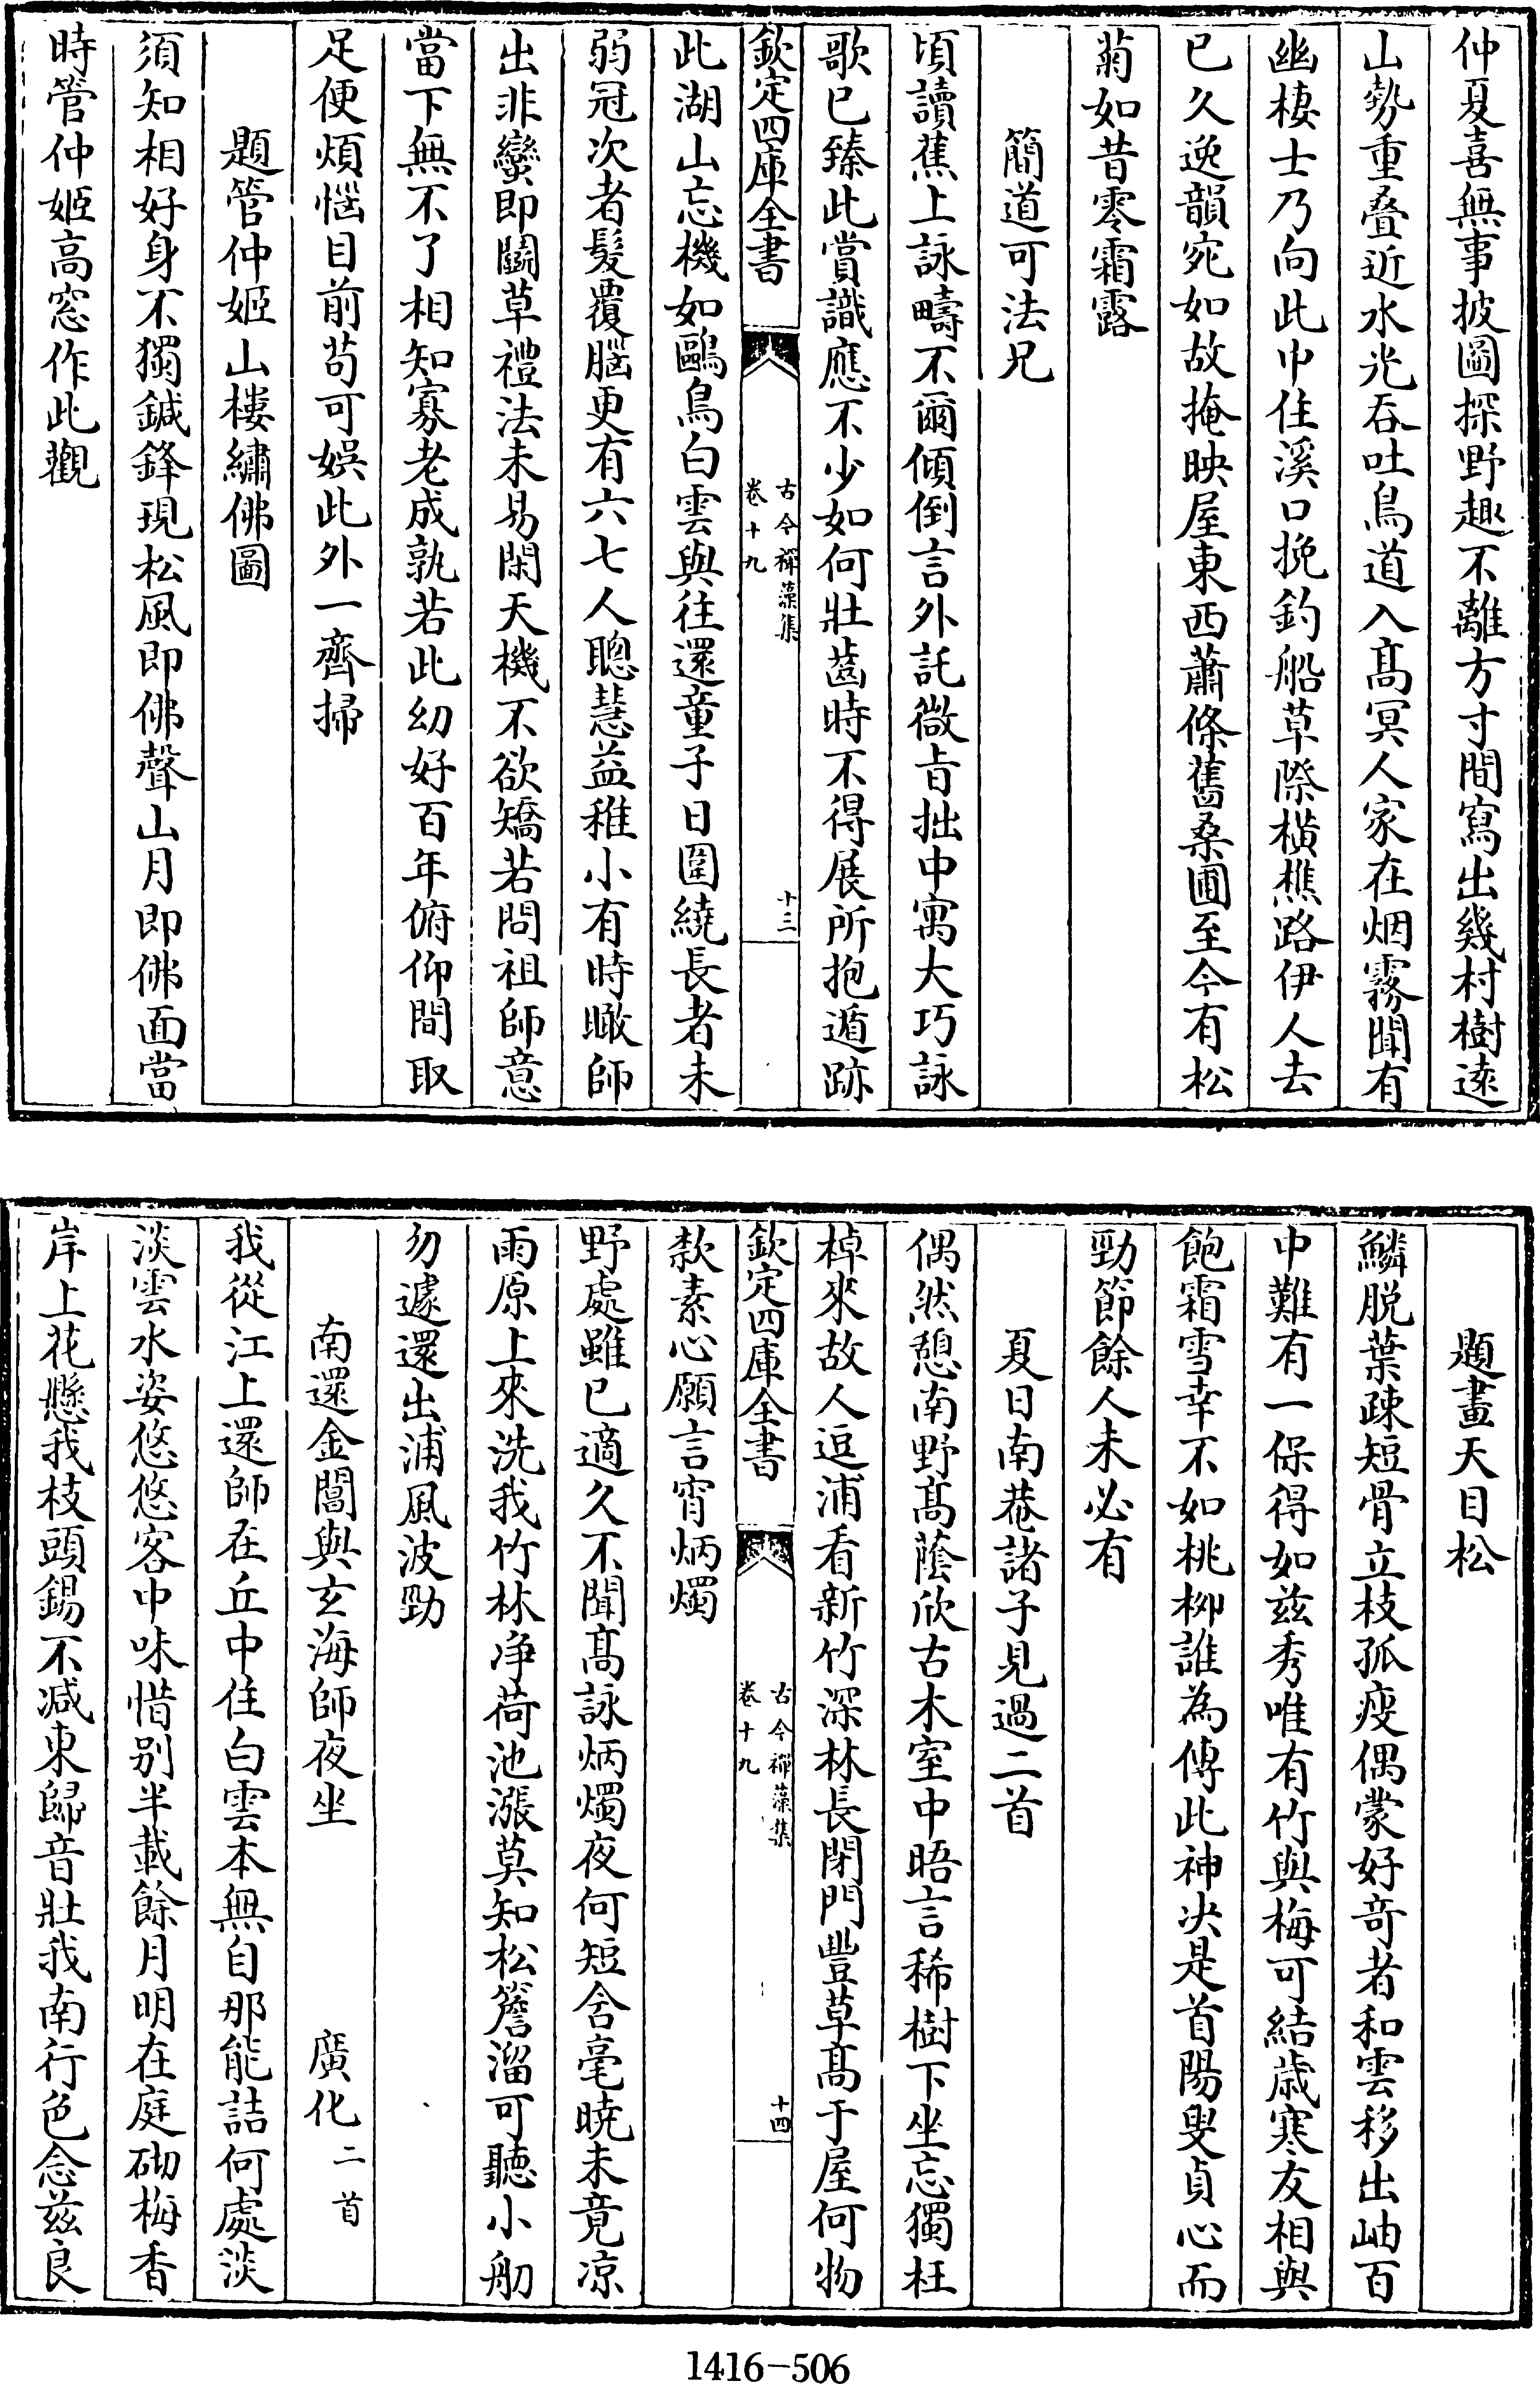 仲夏喜無事披圖探野趣不離方寸間寫出幾村樹遠
山勢重叠近水光吞吐鳥道入髙冥人家在烟霧聞有
幽棲士乃向此中住溪口挽釣船草際橫樵路伊人去
已久逸韻宛如故掩映屋東西蕭條舊桑圃至今有松
菊如昔零霜露
簡道可法兄
頃讀蕉上詠疇不爾傾倒言外託微旨拙中寓大巧詠
歌已臻此賞識應不少如何壯齒時不得展所抱遁跡
欽定四庫全書
古今禪藻集
卷十九
十三
此湖山忘機如鷗鳥白雲與往還童子日圍繞長者未
弱冠次者髮覆腦更有六七人聰慧益稚小有時瞰師
出非蠻即鬭草禮法未易閑天機不欲矯若問祖師意
當下無不了相知寡老成孰若此幼好百年俯仰間取
足便煩惱目前苟可娛此外一齊掃
題管仲姬山樓繡佛圖
須知相好身不獨鍼鋒現松風即佛聲山月即佛面當
時管仲姬高窓作此觀
題畫天目松
鱗脱葉疎短骨立枝孤瘦偶蒙好竒者和雲移出岫百
中難有一保得如兹秀唯有竹與梅可結歳寒友相與
飽霜雪幸不如桃柳誰為傳此神决是首陽叟貞心而
勁節餘人未必有
夏日南巷諸子見過二首
偶然憩南野髙蔭欣古木室中晤言稀樹下坐忘獨枉
棹來故人逗浦看新竹深林長閉門豐草髙于屋何物
欽定四庫全書
古今禪藻集
卷十九
十四
欵素心願言宵炳燭
野處雖已適久不聞髙詠炳燭夜何短含毫曉未竟凉
雨原上來洗我竹林净荷池漲莫知松簷溜可聽小舠
勿遽還出浦風波勁
南還金閶與玄海師夜坐 廣化二首
我從江上還師在丘中住白雲本無自那能詰何處淡
淡雲水姿悠悠客中味惜别半載餘月明在庭砌梅香
岸上花懸我枝頭錫不减東歸音壯我南行色念兹良
1416-506